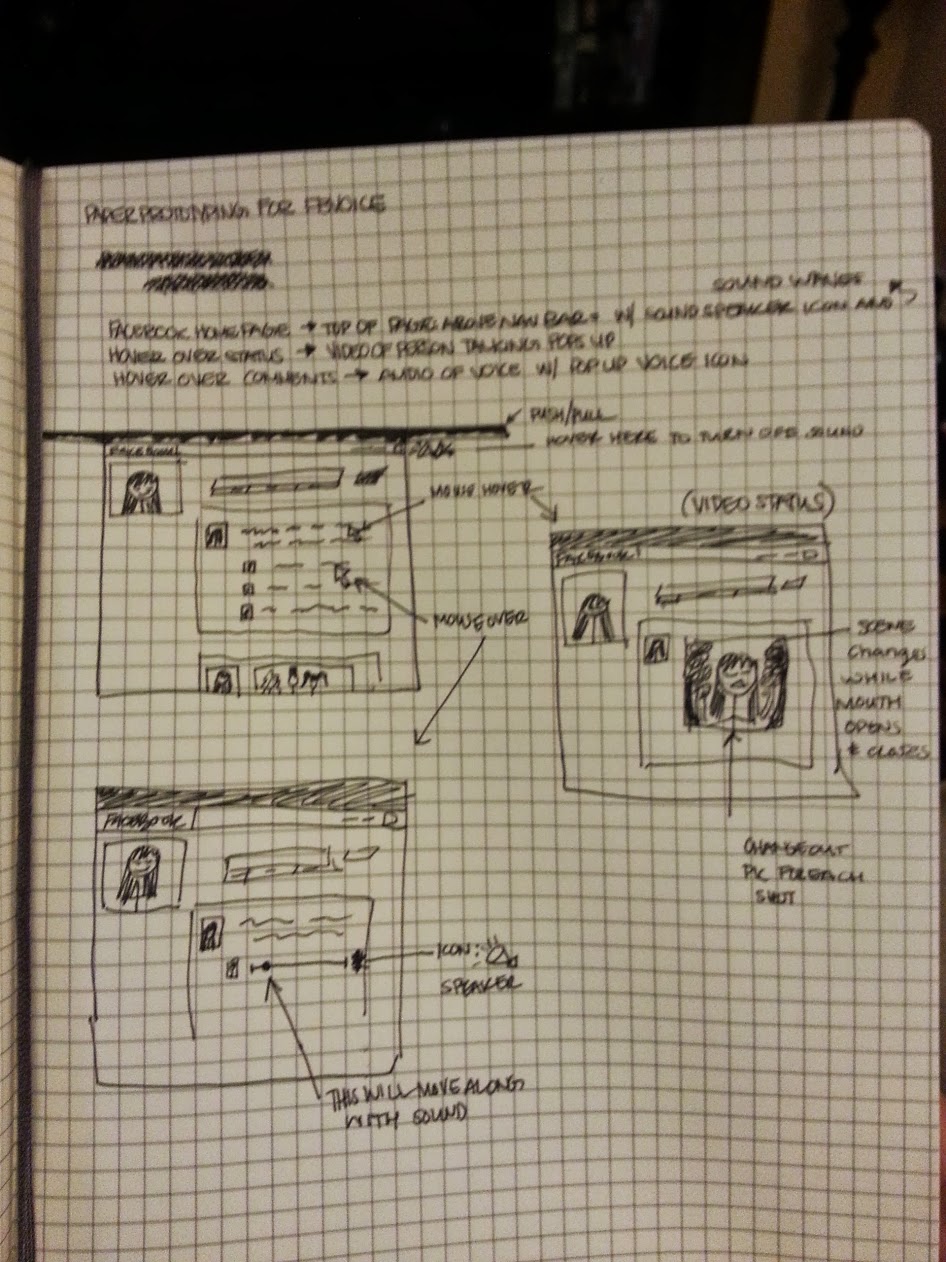 PAPER PROTOTYPING FOR FBVOICE
SOUND WAVES
FACEBOOK HOMEPAGE → TOP OF PAGE ABOVE NAV BAR + W/ SOUND SPEAKER ICON AND
HOVER OVER STATUS → VIDEO OF PERSON TALKING POPS UP
HOVER OVER COMMENTS → AUDIO OF VOICE W/ POP UP VOICE ICON
PUSH/PULL
HOVER HERE TO TURN OFF SOUND
FACEBOOK
HOVER
(VIDEO STATUS)
FACEBOOK
OVER
SCENE
changes
WHILE
MOUTH
OPENS
& CLOSES
CHANGE OUT
PIC FOR EACH
SHOT
FACEBOOK
ICON:
SPEAKER
THIS WILL MOVE ALONG
WITH SOUND